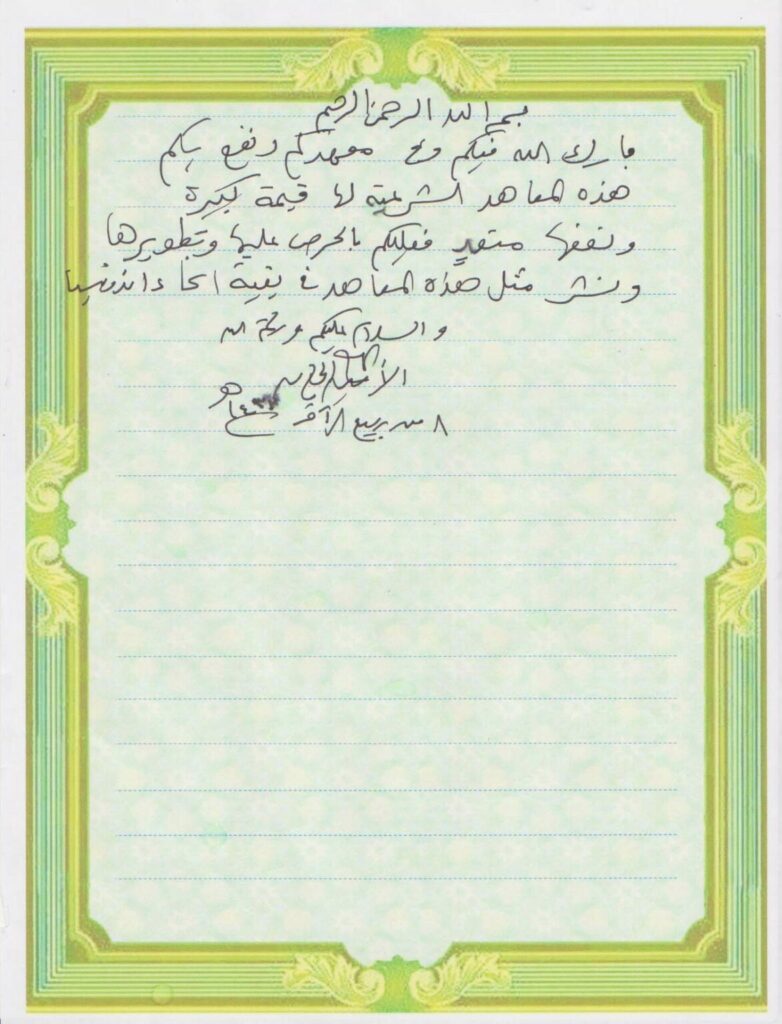 بسم الله الرحمن الرحيم
بارك الله فيكم وفي معهدكم ونفع بكم
هذه المعاهد الشرعية لها قيمة كبيرة
ونفعها متعدٍ فعليكم بالحرص عليها وتطويرها
ونشر مثل هذه المعاهد في بقية انحاء اندنوسيا
والسلام عليكم ورحمة الله
٨ من ربيع الآخر